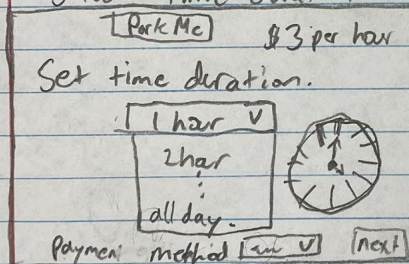 Park Me
$3 per hour
Set time duration.
1 hour V
2 hour
⋮
all day.
Payment method V
next